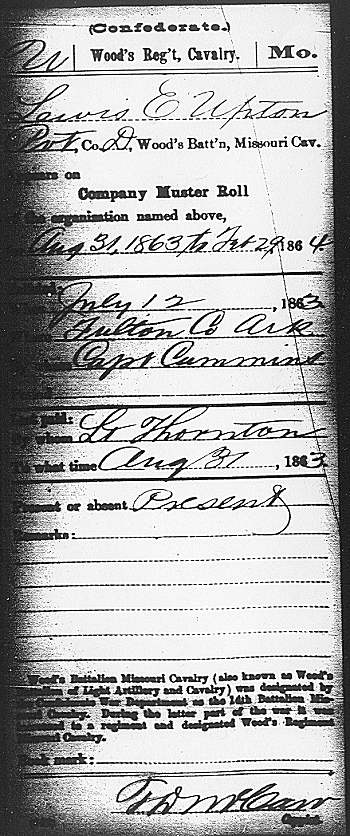 (Confederate.)
U | Wood's Reg't, Cavalry. | Mo.
Lewis E Upton
Pvt, Co. D, Wood's Batt'n, Missouri Cav.
on
Company Muster Roll
the organization named above,
Aug 31, 1863 to Feb 29, 1864
July 12, 1863
Fulton Co Ark
Capt Cummins
paid:
By whom Lt Thornton
To what time Aug 31, 1863
Present or absent Present
Remarks:
Wood's Battalion Missouri Cavalry (also known as Wood's
of Light Artillery and Cavalry) was designated by
War Department as the 14th Battalion
Cavalry. During the latter part of the war it was
to a regiment and designated Wood's Regiment
Cavalry.
Book mark:
Copyist.